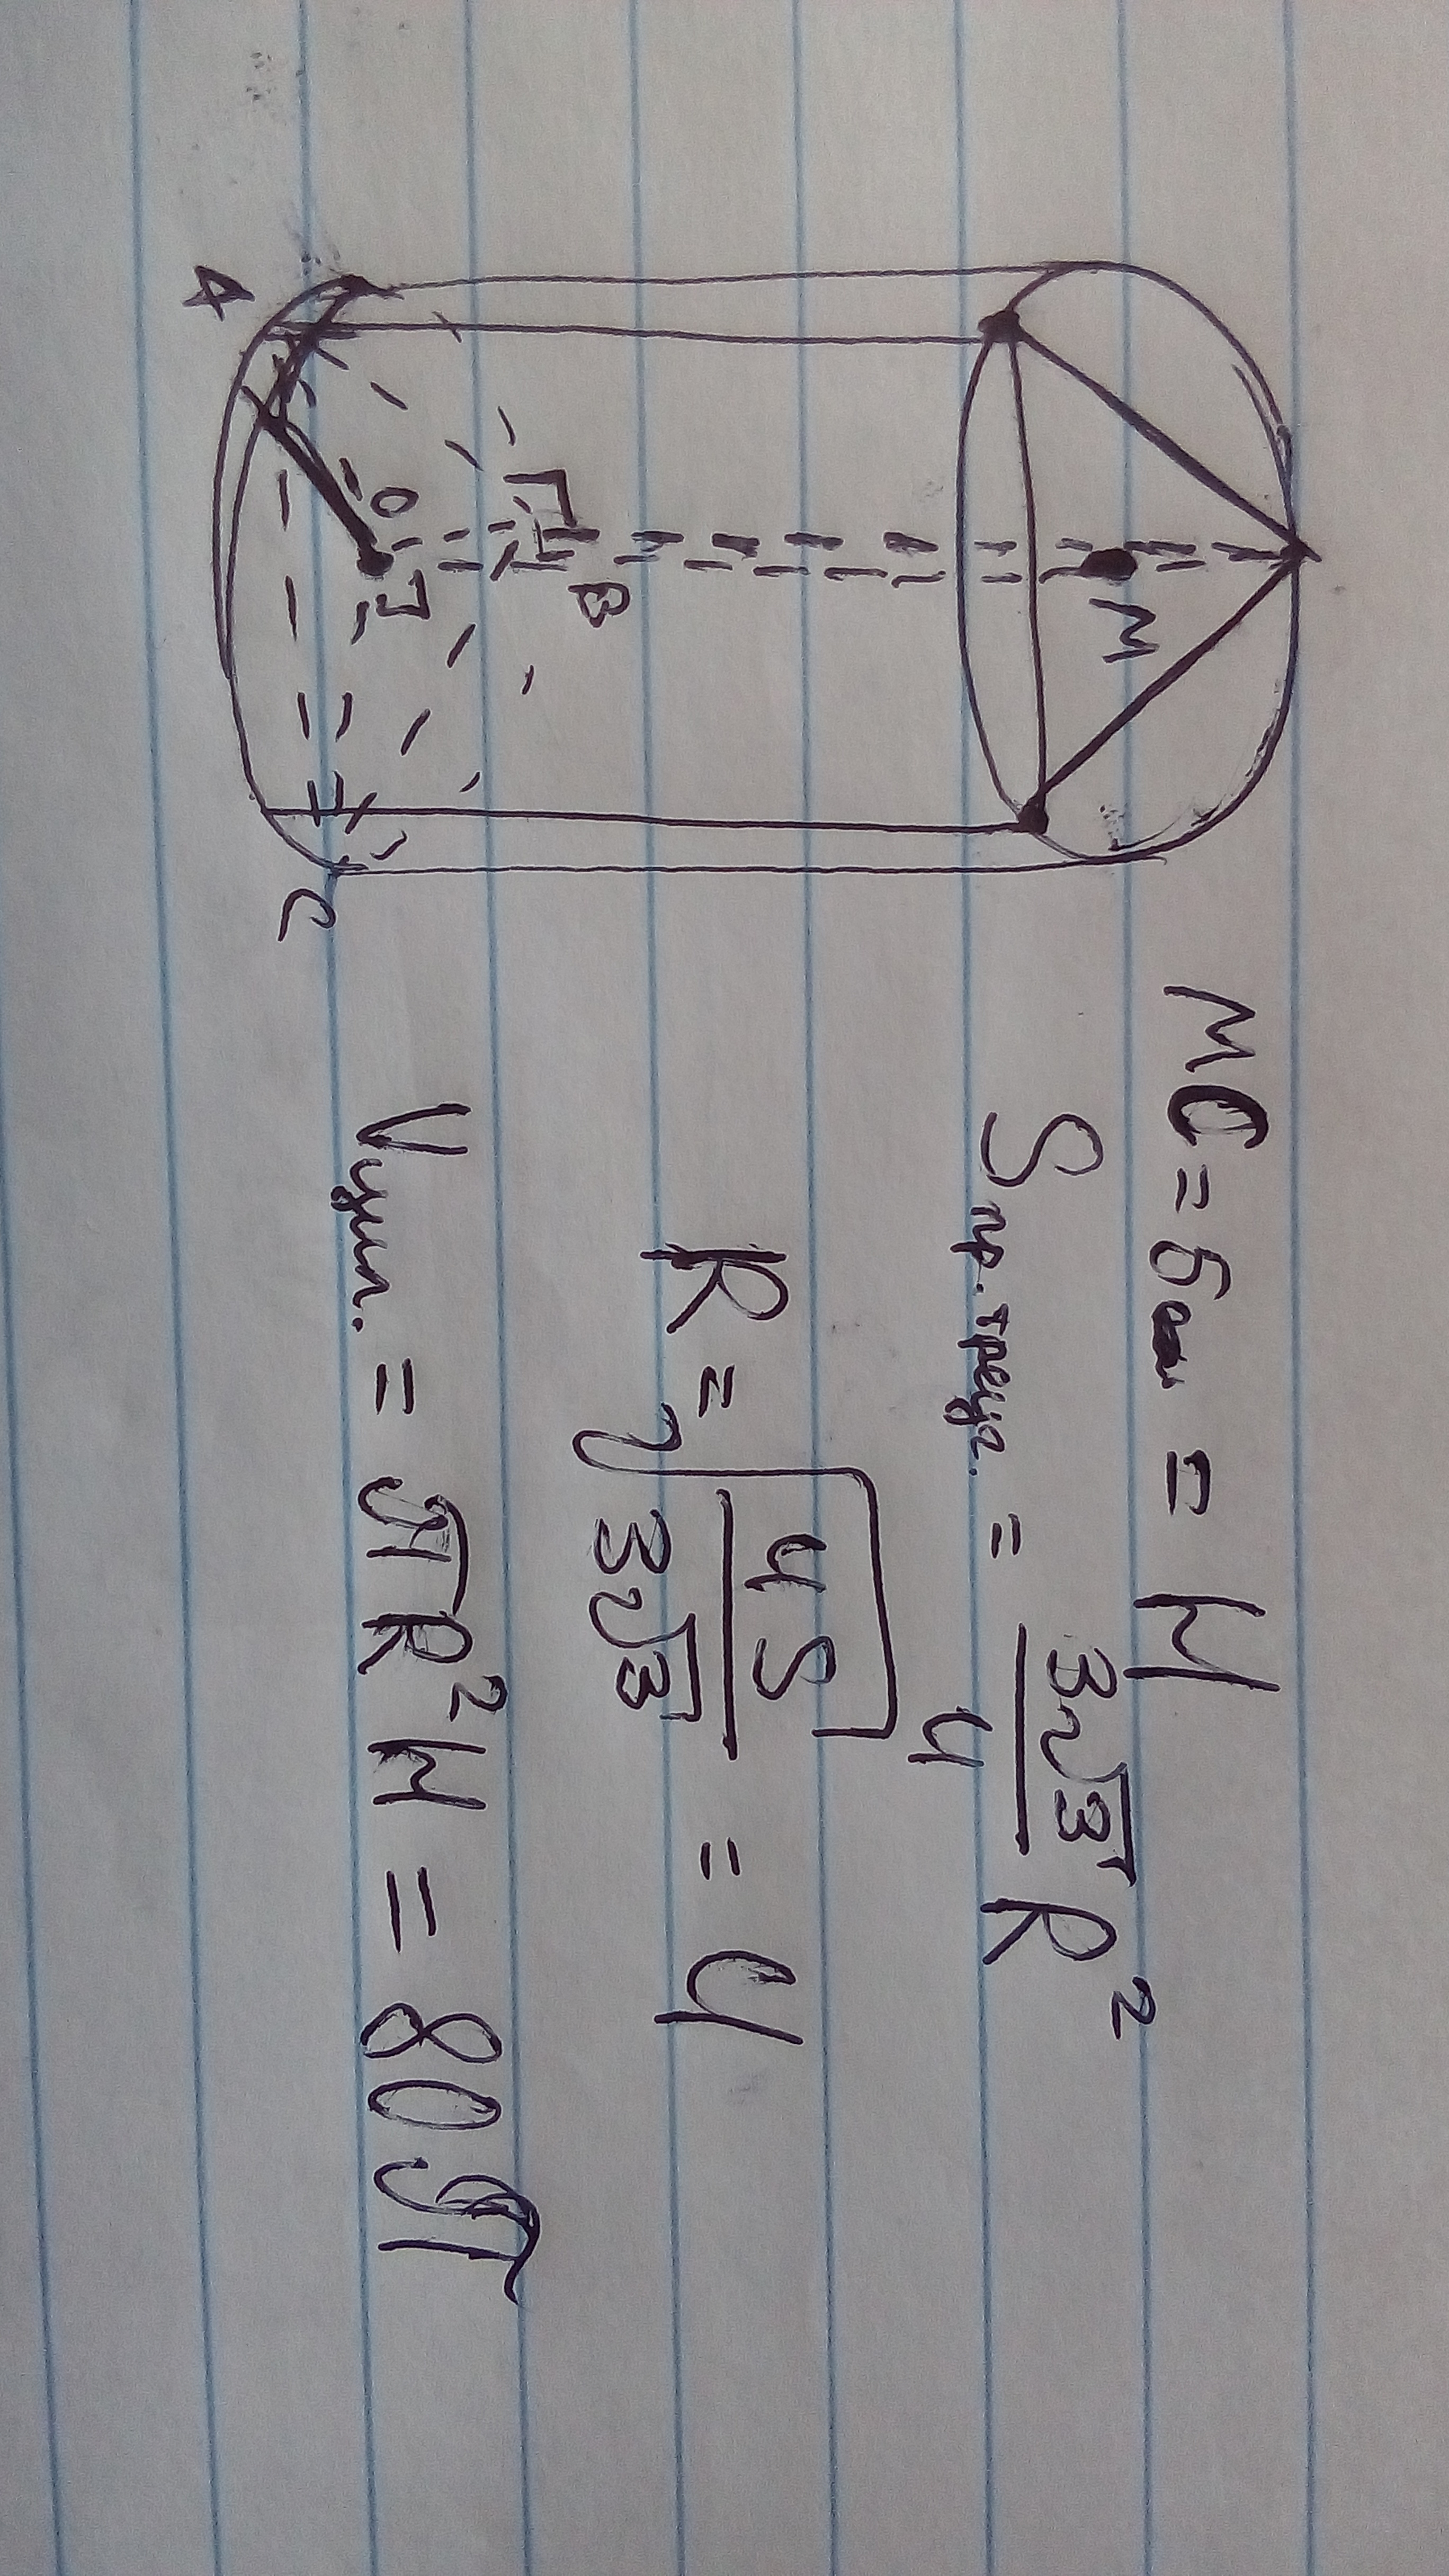 M
O
B
A
C
MC = 5см = H
Sпр.треуг. = 3√3/4 R²
R = √(4S/3√3) = 4
Vцил. = πR²H = 80π